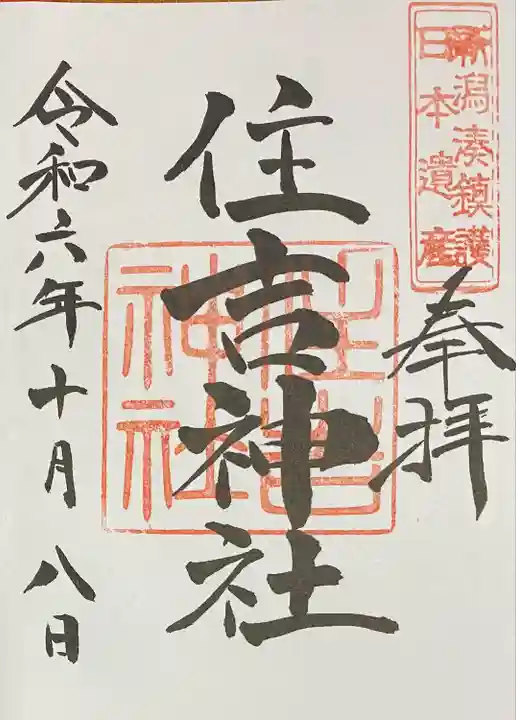 新潟湊鎮護
日本遺産
奉拝
住吉神社
住吉神社
令和六年十月八日